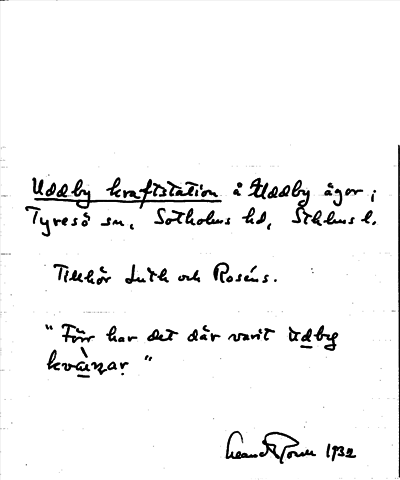 Uddby kraftstation å Uddby ägor i
Tyresö sn, Sotholms hd, Sthlms l.
Tillhör Luth och Roséns.
"Förr har det där varit ùdbyg
kvàrnar"
1932